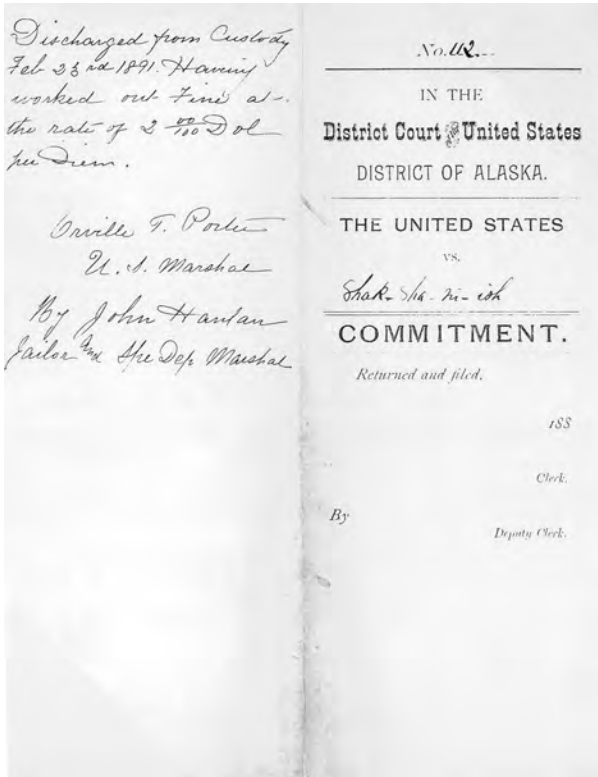 Discharged from Custody
Feb 23rd 1891. Having
worked out Fine at
the rate of 2 00/100 Dol
per Diem.
Orville T. Porter
U. S. Marshal
By John Hanlan
Jailor and Spe Dep Marshal
No. 112
IN THE
District Court of the United States
DISTRICT OF ALASKA.
THE UNITED STATES
vs.
Shak-Sha-ni-ish
COMMITMENT.
Returned and filed,
188
Clerk.
By
Deputy Clerk.